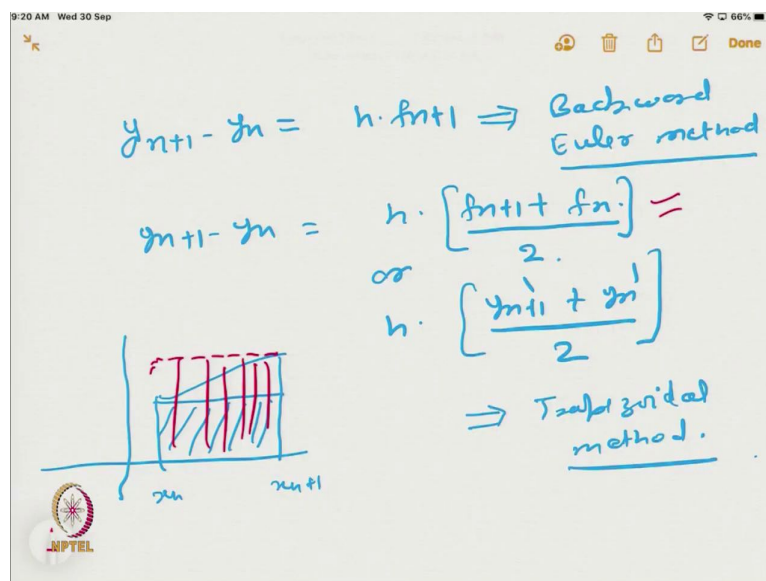 9:20 AM Wed 30 Sep
66%
Done
yn+1 - yn = h. fn+1 ⇒ Backward
Euler method
yn+1 - yn = h. [fn+1 + fn.] =
2.
or
h. [y'n+1 + yn']
2
⇒ Trapizoidal
method.
xn xn+1
NPTEL